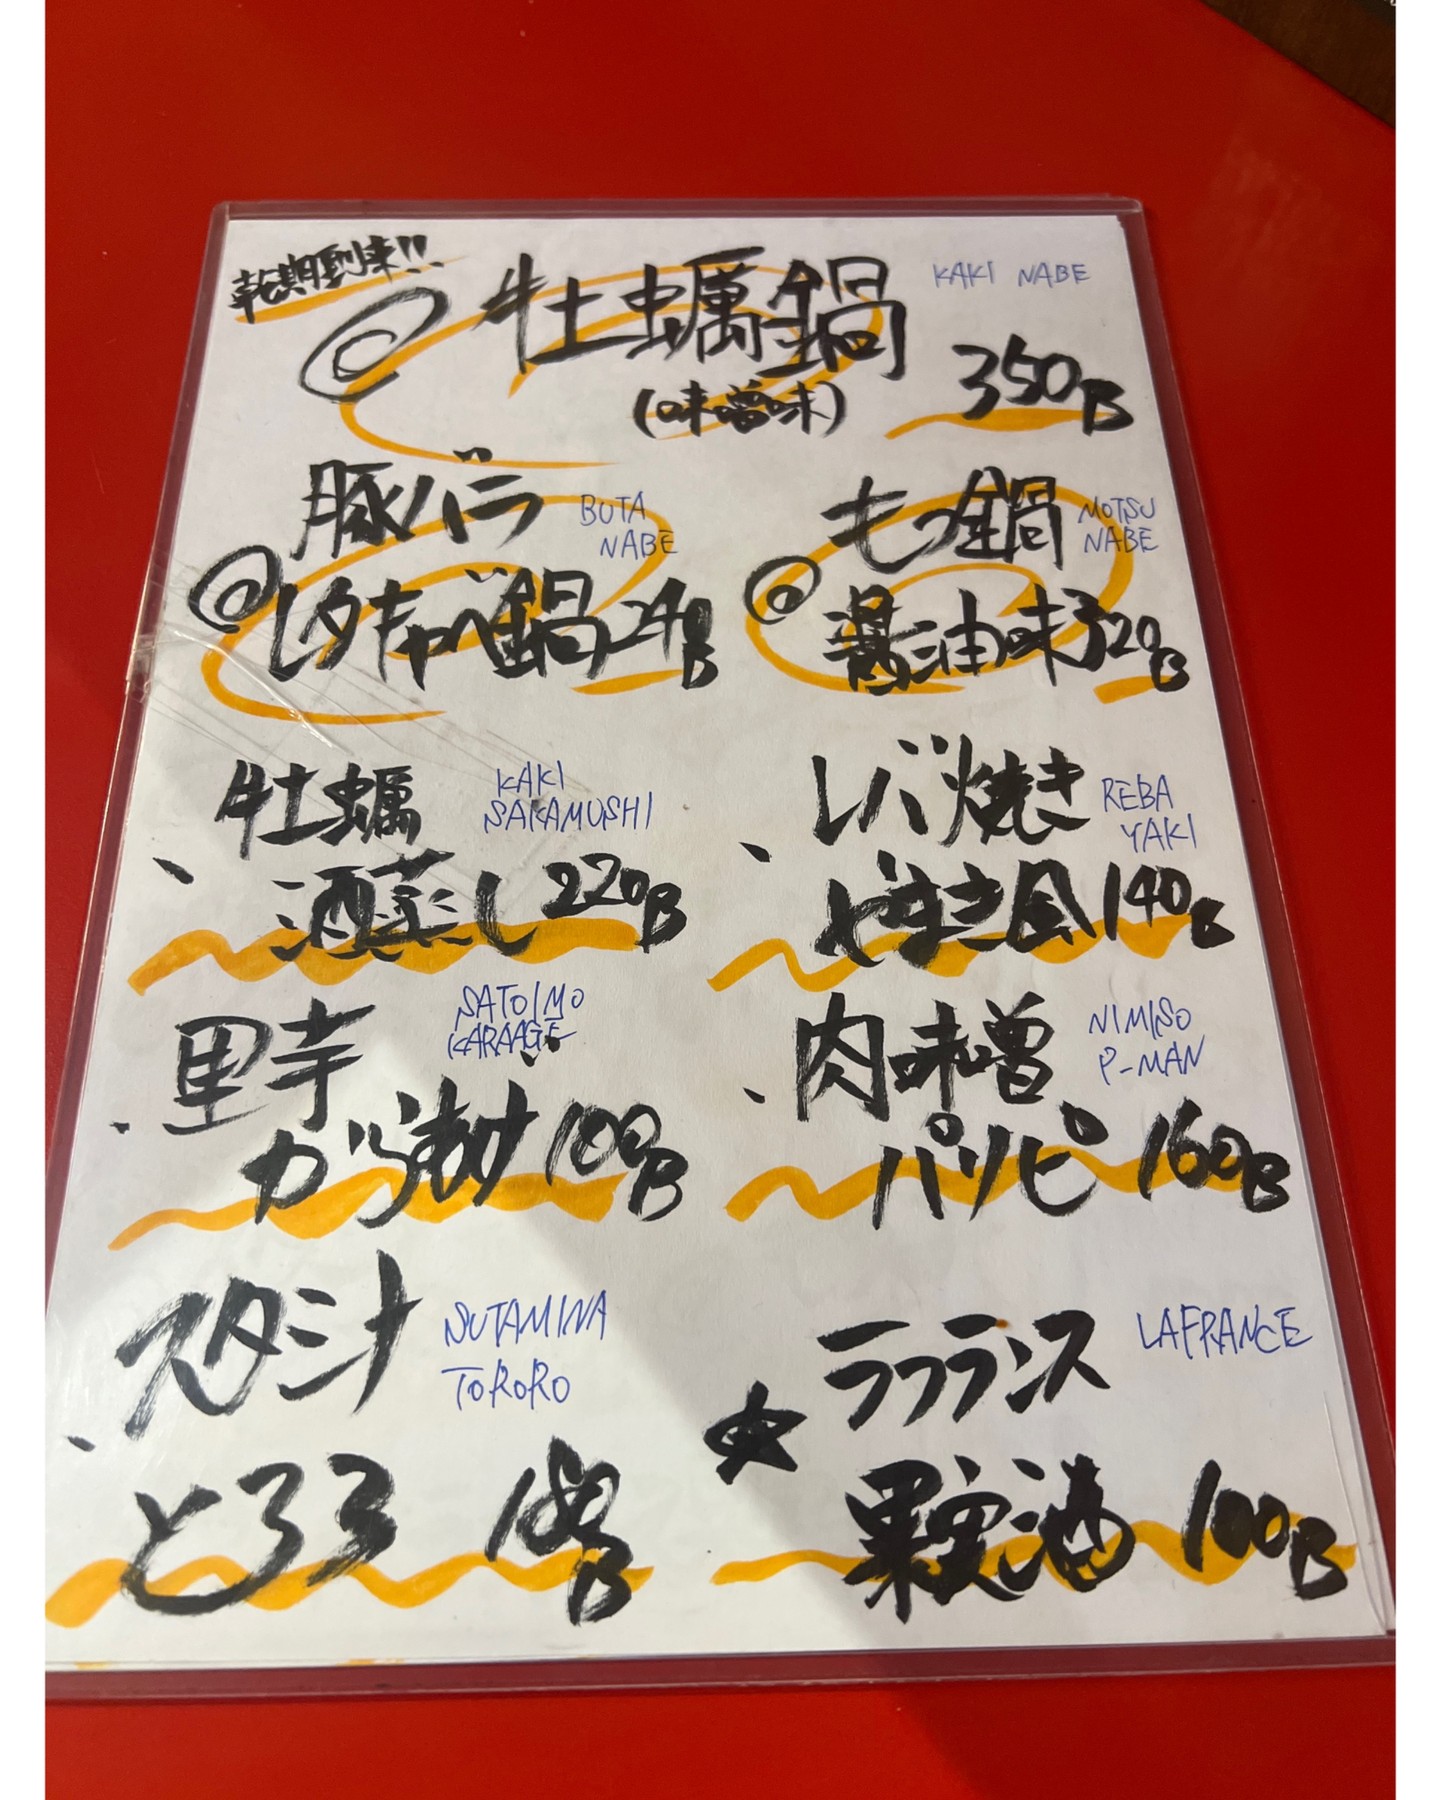 乾期到来!!
牡蠣鍋
KAKI NABE
(味噌味)
350B
豚バラ
BUTA
NABE
レタキャベ鍋
もつ鍋
MOTSU
NABE
醤油味 320B
牡蠣
KAKI
SAKAMUSHI
酒蒸し 220B
レバ焼き
REBA
YAKI
やまき風 140B
里芋
SATOIMO
KARAAGE
からあげ 100B
肉味噌
NIMISO
P-MAN
パリピ 160B
スタミナ
SUTAMINA
TORORO
とろろ
ラフランス
LAFRANCE
果実酒 100B